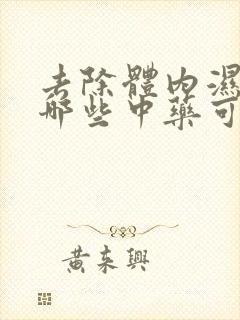 去除體內濕
哪些中藥可
黃來興